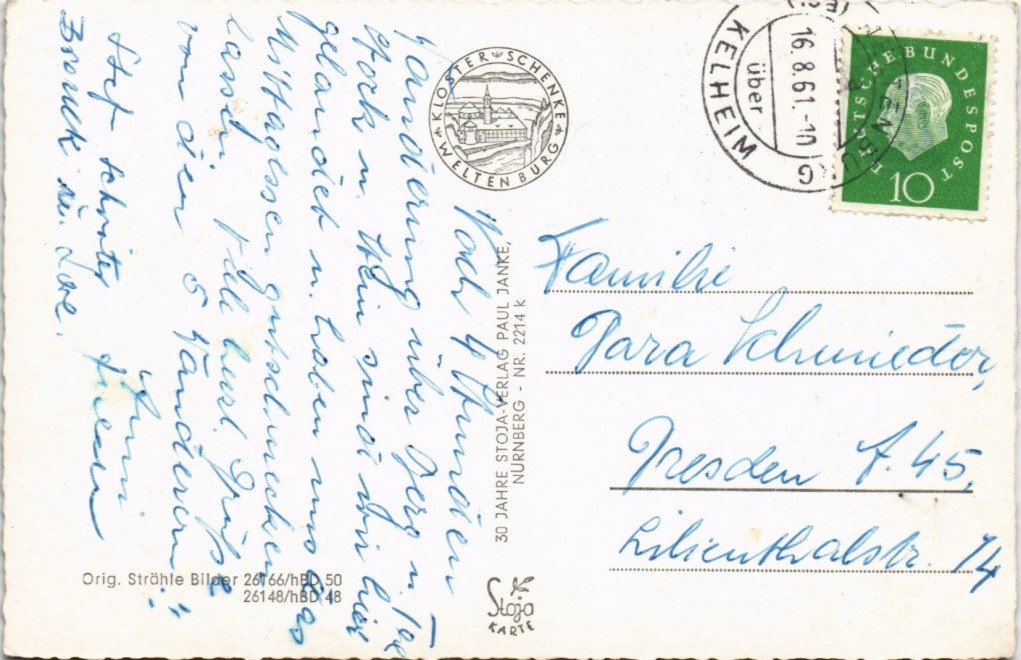 Nach 4 Stunden
Wanderung über Berg u. Tal
Stock u. Stein sind wir hier
gelandet u. haben uns das
Mittagessen gut schmecken
lassen. Viele herzl. Grüße
von den 5 Wanderern:
Anni
Stef
Bronek u. Lore.
KLOSTER SCHENKE
WELTENBURG
30 JAHRE STOJA-VERLAG PAUL JANKE,
NÜRNBERG - NR. 2214 k
Orig. Strähle Bilder 26166/hBD 50
26148/hBD 48
Stoja
KARTE
über
KELHEIM
16.8.61.-10
G
DEUTSCHE BUNDESPOST
10
Familie
Para Schmieder,
Dresden A. 45,
Lilienthalstr. 14